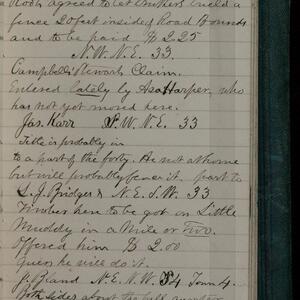 agreed to let build a
fence 20 feet inside of Road Bounds
and to be paid $ 2.25
N.W. N.E. 33.
Campbell & Stewarts Claim.
Entered Lately by Asa Harper, who
has not yet moved here.
Jas. Karr S.W. N.E. 33
Title is probably in
to a part of the forty. He not at home
but will probably fence it. part to
S. J. Bridges N.E. S.W. 33
Timber here to be got on Little
Muddy in a Mile or Two.
Offered him $ 2.00
Guess he will do it.
J. Bland N.E. N.W. 34 Town 4.
Both sides about the half